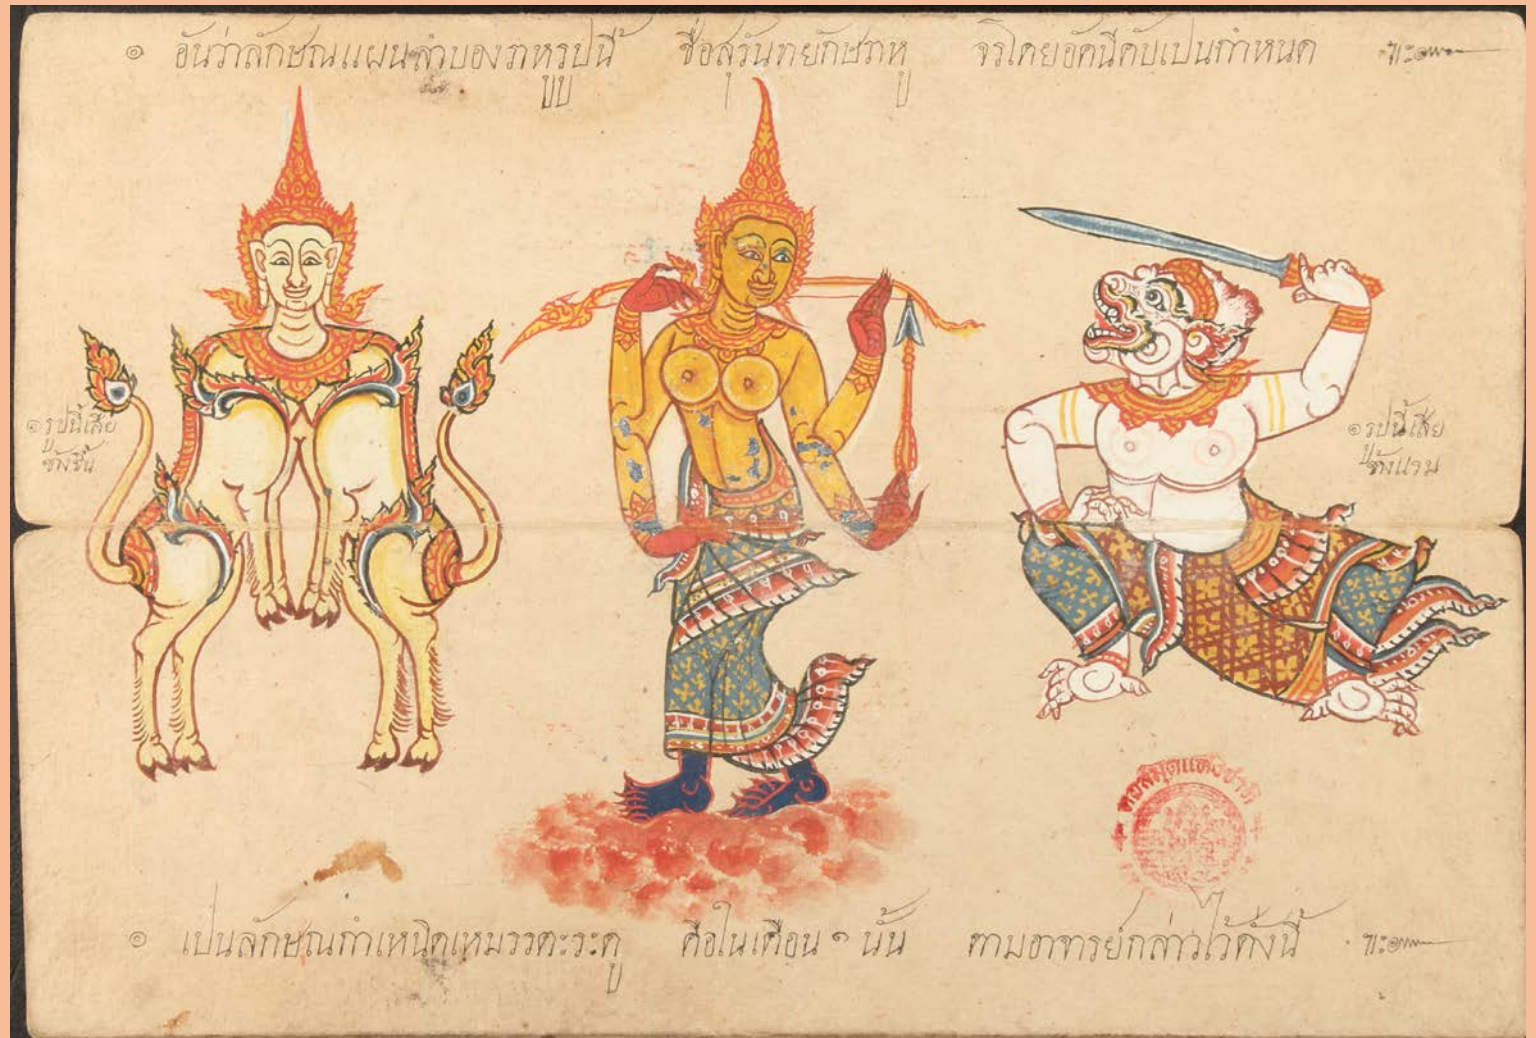 ๑ อันว่าลักษณแผนลำบองราหูรูปนี้ ชื่อสุรันทยักษราหู จรโดยอัคนีคับเปนกำหนด ฯะ๛
๑ รูปนี้เสีย
ข้างขึ้น
๑ รูปนี้เสีย
ข้างแรม
หอสมุดแห่งชาติ
๑ เปนลักษณกำเหนิดเหมรรตะระดู คือในเดือน ๑ นั้น ตามอาจารย์กล่าวไว้ดั่งนี้ ฯะ๛